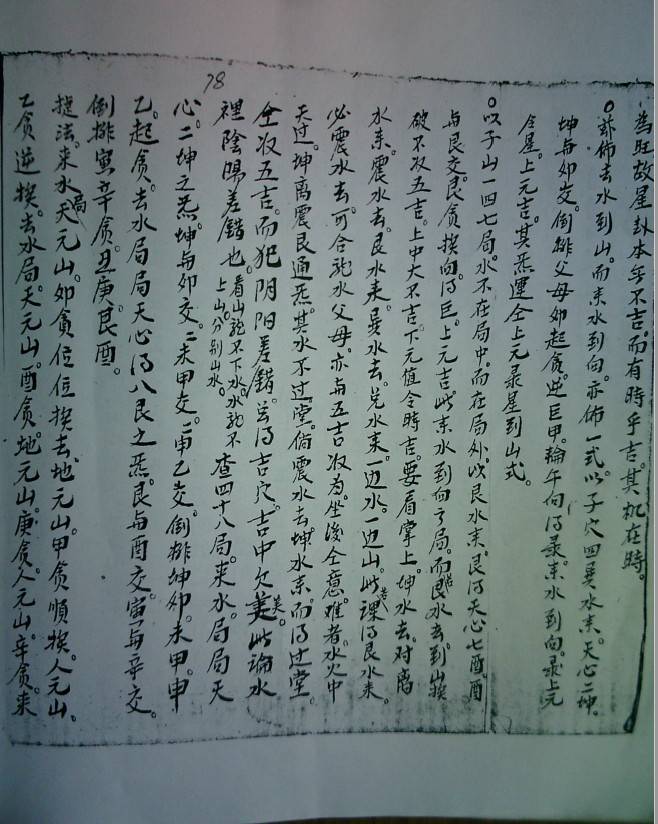 為旺故星卦本無不吉。而有時乎吉。其机在時。
○茲佈去水到山。而来水到向。亦佈一式。以子穴四巽水来。天心二坤。
坤与卯交。倒排父母卯起貪。逆巨甲。輪午向得彔。来水到向。彔上元
令星。上元吉。其炁運合上元彔星到山式。
○以子山一四七局。水不在局中。而在局外。以艮水来。艮得天心七酉。酉
与艮交。艮貪挨向得巨。上元吉。此来水到向之局。而艮水去到山挨
破不收五吉。上中大不吉。下元值令時吉。要看掌上。坤水去。对离
水来。震水去。艮水来。巽水去。兌水来。一边水。一边山。此課得艮水来。
必震水去。可合龍水父母。亦与五吉收為。坐後全意。难者。水火中
天过。坤离震艮通炁。其水不过堂。倘震水去。坤水来。而得过堂。
全收五吉。而犯阴阳差錯。岂得吉穴。吉中欠美矣。此論水
78
裡陰陽差錯也。看山龍不下水。水龍不上山。分别山水。查四十八局。来水局局天
心。二坤之炁。坤与卯交。二未甲交。二申乙交。倒排坤卯。未甲。申
乙。起貪。去水局局天心得八艮之炁。艮与酉交。寅与辛交。
倒排寅辛貪。丑庚。艮酉。
挨法。来水局天元山。卯貪位位挨去。地元山。甲貪順挨。人元山。
乙貪逆挨。去水局。天元山。酉貪。地元山。庚貪。人元山。辛貪。来